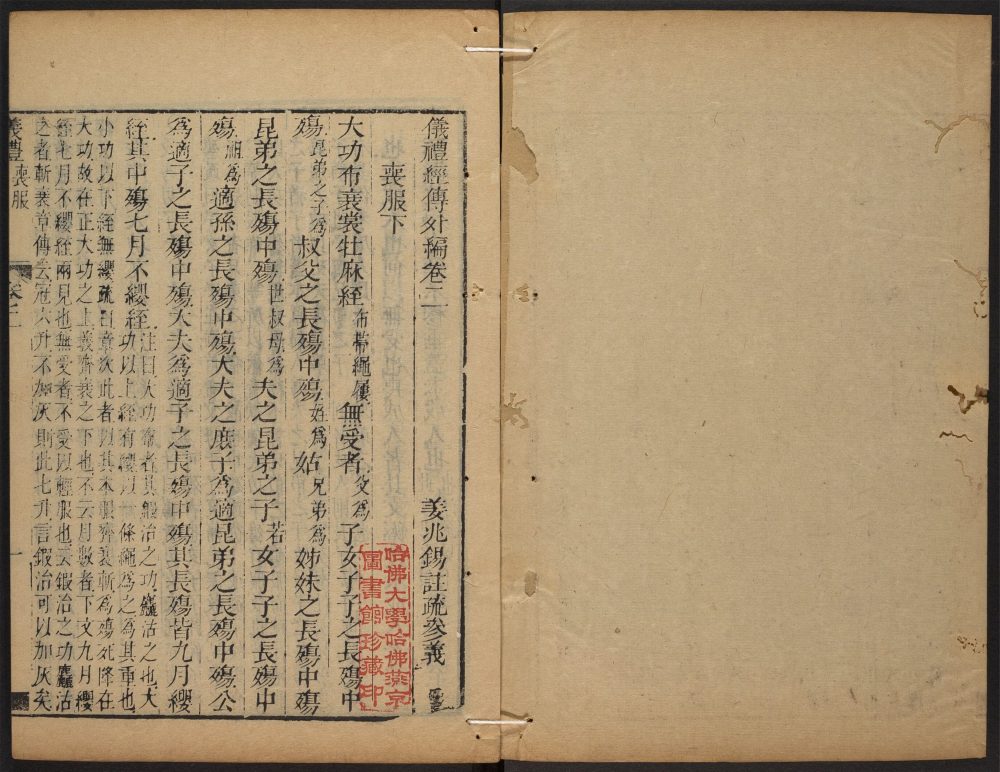 儀禮經傳外編卷二
姜兆錫註疏參義
喪服下
大功布衰裳牡麻絰布帶繩屨無受者父為子女子子之長殤中
殤昆弟之子為叔父之長殤中殤姪為姑兄弟為姊妹之長殤中殤
昆弟之長殤中殤世叔母為夫之昆弟之子若女子子之長殤中
殤祖為適孫之長殤中殤大夫之庶子為適昆弟之長殤中殤公
為適子之長殤中殤大夫為適子之長殤中殤其長殤皆九月纓
絰其中殤七月不纓絰注曰大功布者其鍛治之功麤沽之也大
功以上絰有纓以一條繩為之為其重也
小功以下絰無纓疏曰章次此者以其本服齊衰斬為殤死降在
大功故在正大功之上義齊衰之下也不云月數者下文九月纓
絰七月不纓絰兩見也無受者不受以輕服也云鍛治之功麤沽
之者斬衰章傳云冠六升不加灰則此七升言鍛治可以加灰矣
儀禮 喪服
卷二
一
哈佛大學哈佛燕京
圖書館珍藏印